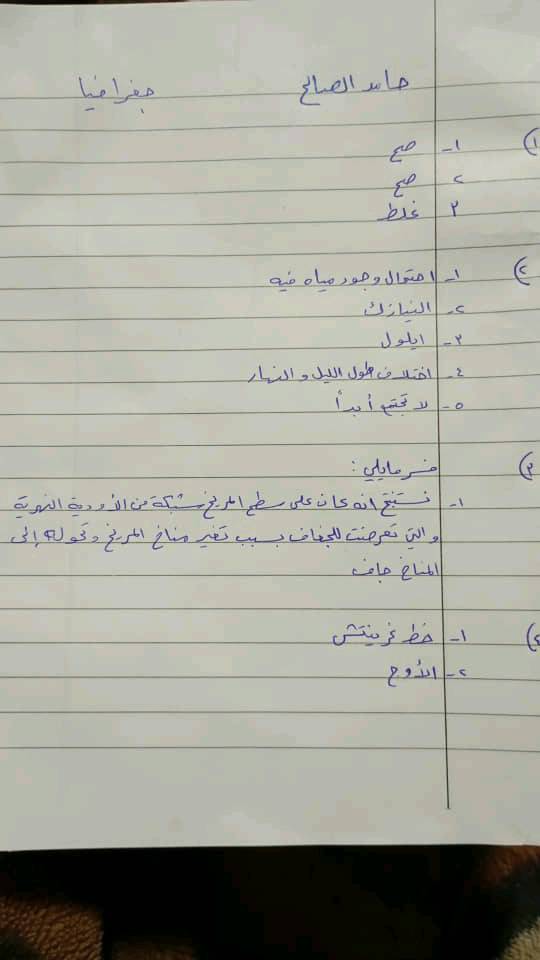 حامد الصالح جغرافيا
١) ١- صح
٢ صح
٣ غلط
٢) ١- احتمال وجود مياه فيه
٢- النيازك
٣- ايلول
٤- اختلاف طول الليل و النهار
٥- لا تجتمع أبداً
٣) فسر مايلي :
١- نستنتج انه كان على سطح المريخ شبكة من الأودية النهرية
والتي تعرضت للجفاف بسبب تغير مناخ المريخ وتحوله إلى
المناخ جاف
٤) ١- خط غرينتش
٢- الأوج